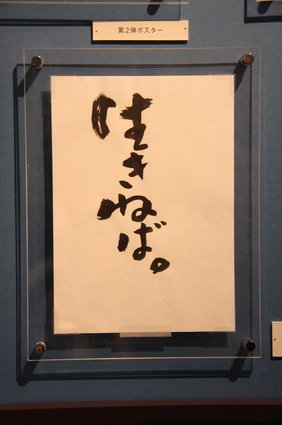 第2弾ポスター
生きねば。